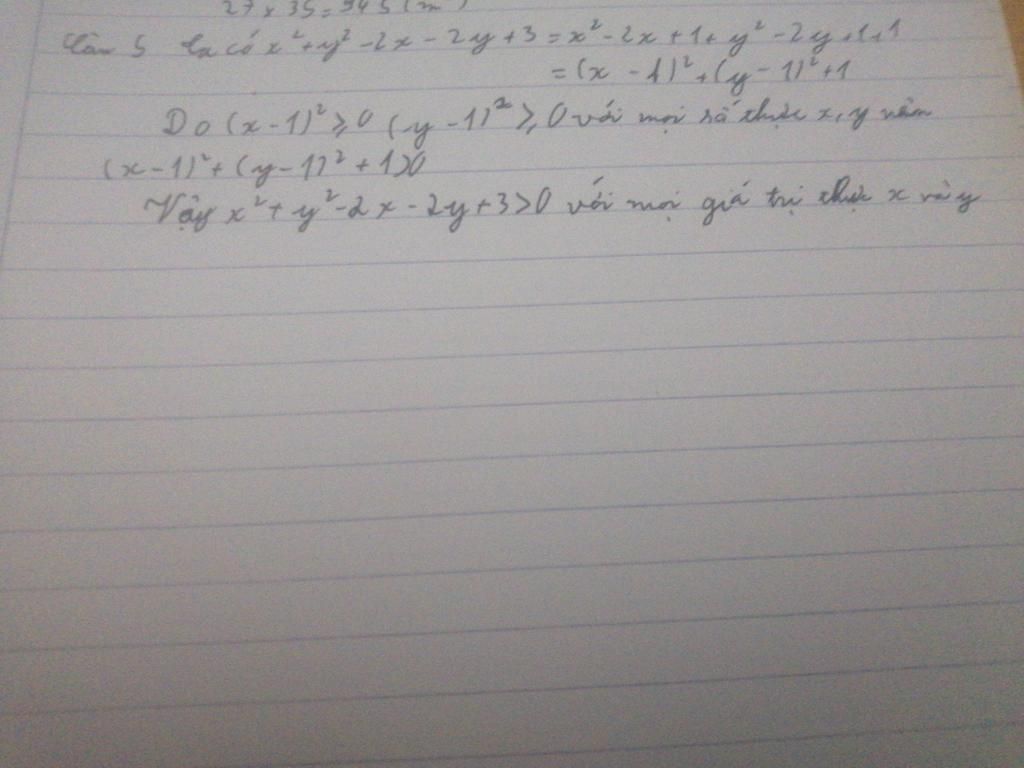 27 x 35 = 945 (m²)
Câu 5 ta có x² + y² - 2x - 2y + 3 = x² - 2x + 1 + y² - 2y + 1 + 1
= (x - 1)² + (y - 1)² + 1
Do (x - 1)² ≥ 0 (y - 1)² ≥ 0 với mọi số thực x, y nên
(x - 1)² + (y - 1)² + 1 > 0
Vậy x² + y² - 2x - 2y + 3 > 0 với mọi giá trị thực x và y